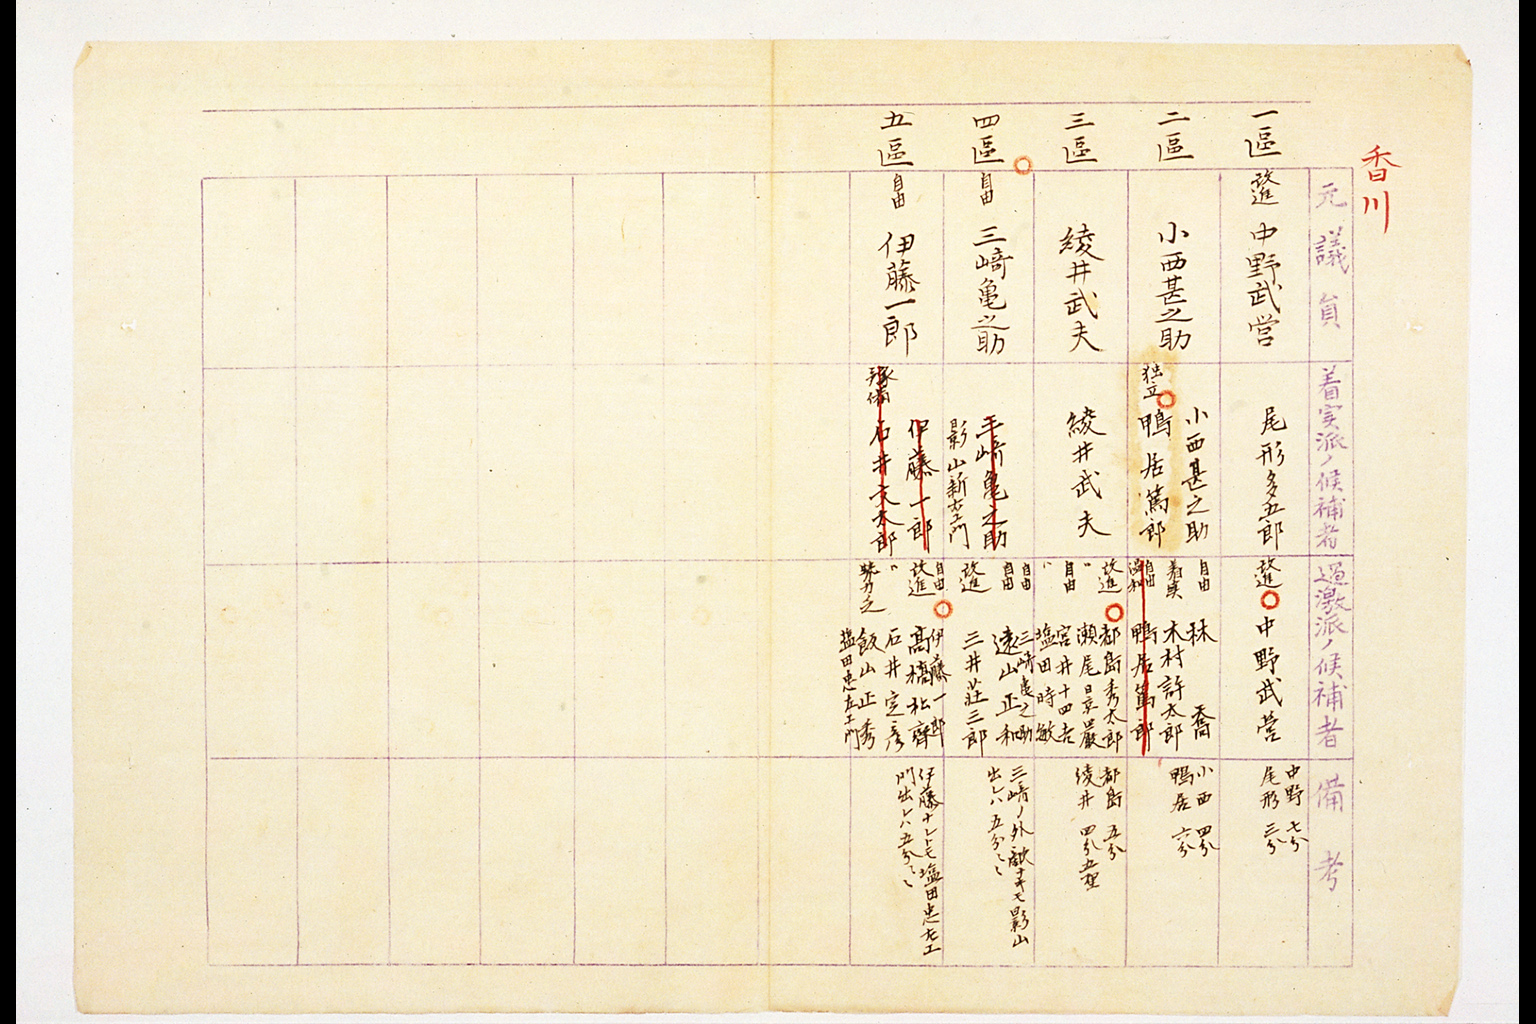 香川
元議員
着実派ノ候補者
過激派ノ候補者
備考
一區
改進
中野武営
尾形多五郎
改進
中野武営
中野 七分
尾形 三分
二區
小西甚之助
小西甚之助
独立
鴨居篤郎
自由
林 喬
着実
木村許太郎
自由
鴨居篤郎
小西 四分
鴨居 六分
三區
綾井武夫
綾井武夫
改進
都島秀太郎
〃
瀬尾景巖
自由
宮井十四吉
〃
塩田時敏
都島 五分
綾井 四分五厘
四區
自由
三崎亀之助
三崎亀之助
影山新右エ門
自由
三崎亀之助
自由
遠山正和
改進
三井荘三郎
三崎ノ外敵ナキモ影山
出レハ五分〻〻
五區
自由
伊藤一郎
伊藤一郎
豫備
石井文太郎
自由
伊藤一郎
改進
髙橋松齊
〃
石井定彦
飯山正秀
塩田忠左エ門
伊藤ナレトモ塩田忠左エ
門出レハ五分〻〻